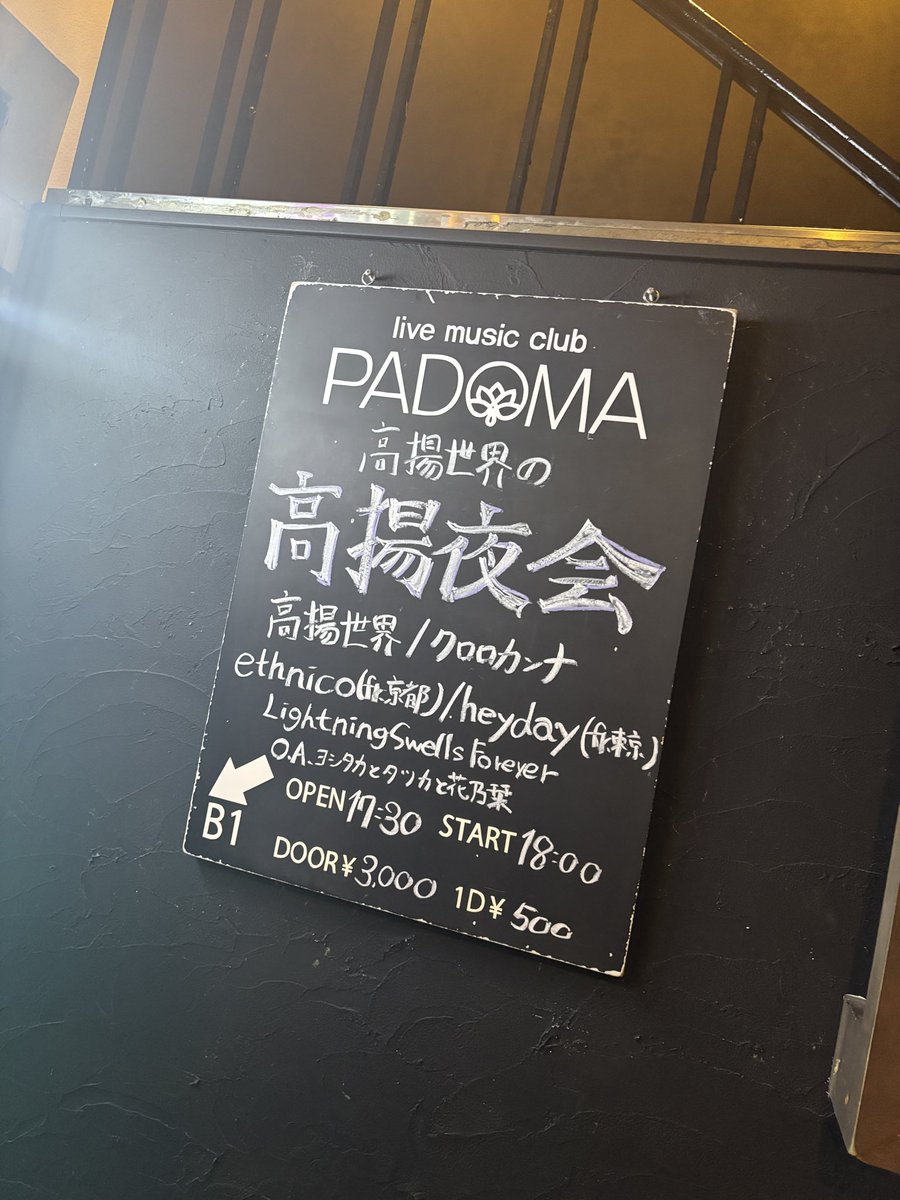 live music club
PADOMA
高揚世界の
高揚夜会
高揚世界/クロロカンナ
ethnico(fr.京都)/heyday(fr東京)
LightningSwells Forever
O.A.ヨシタカとタツカと花乃葉
OPEN17:30 START18:00
B1
DOOR¥3,000 1D¥500